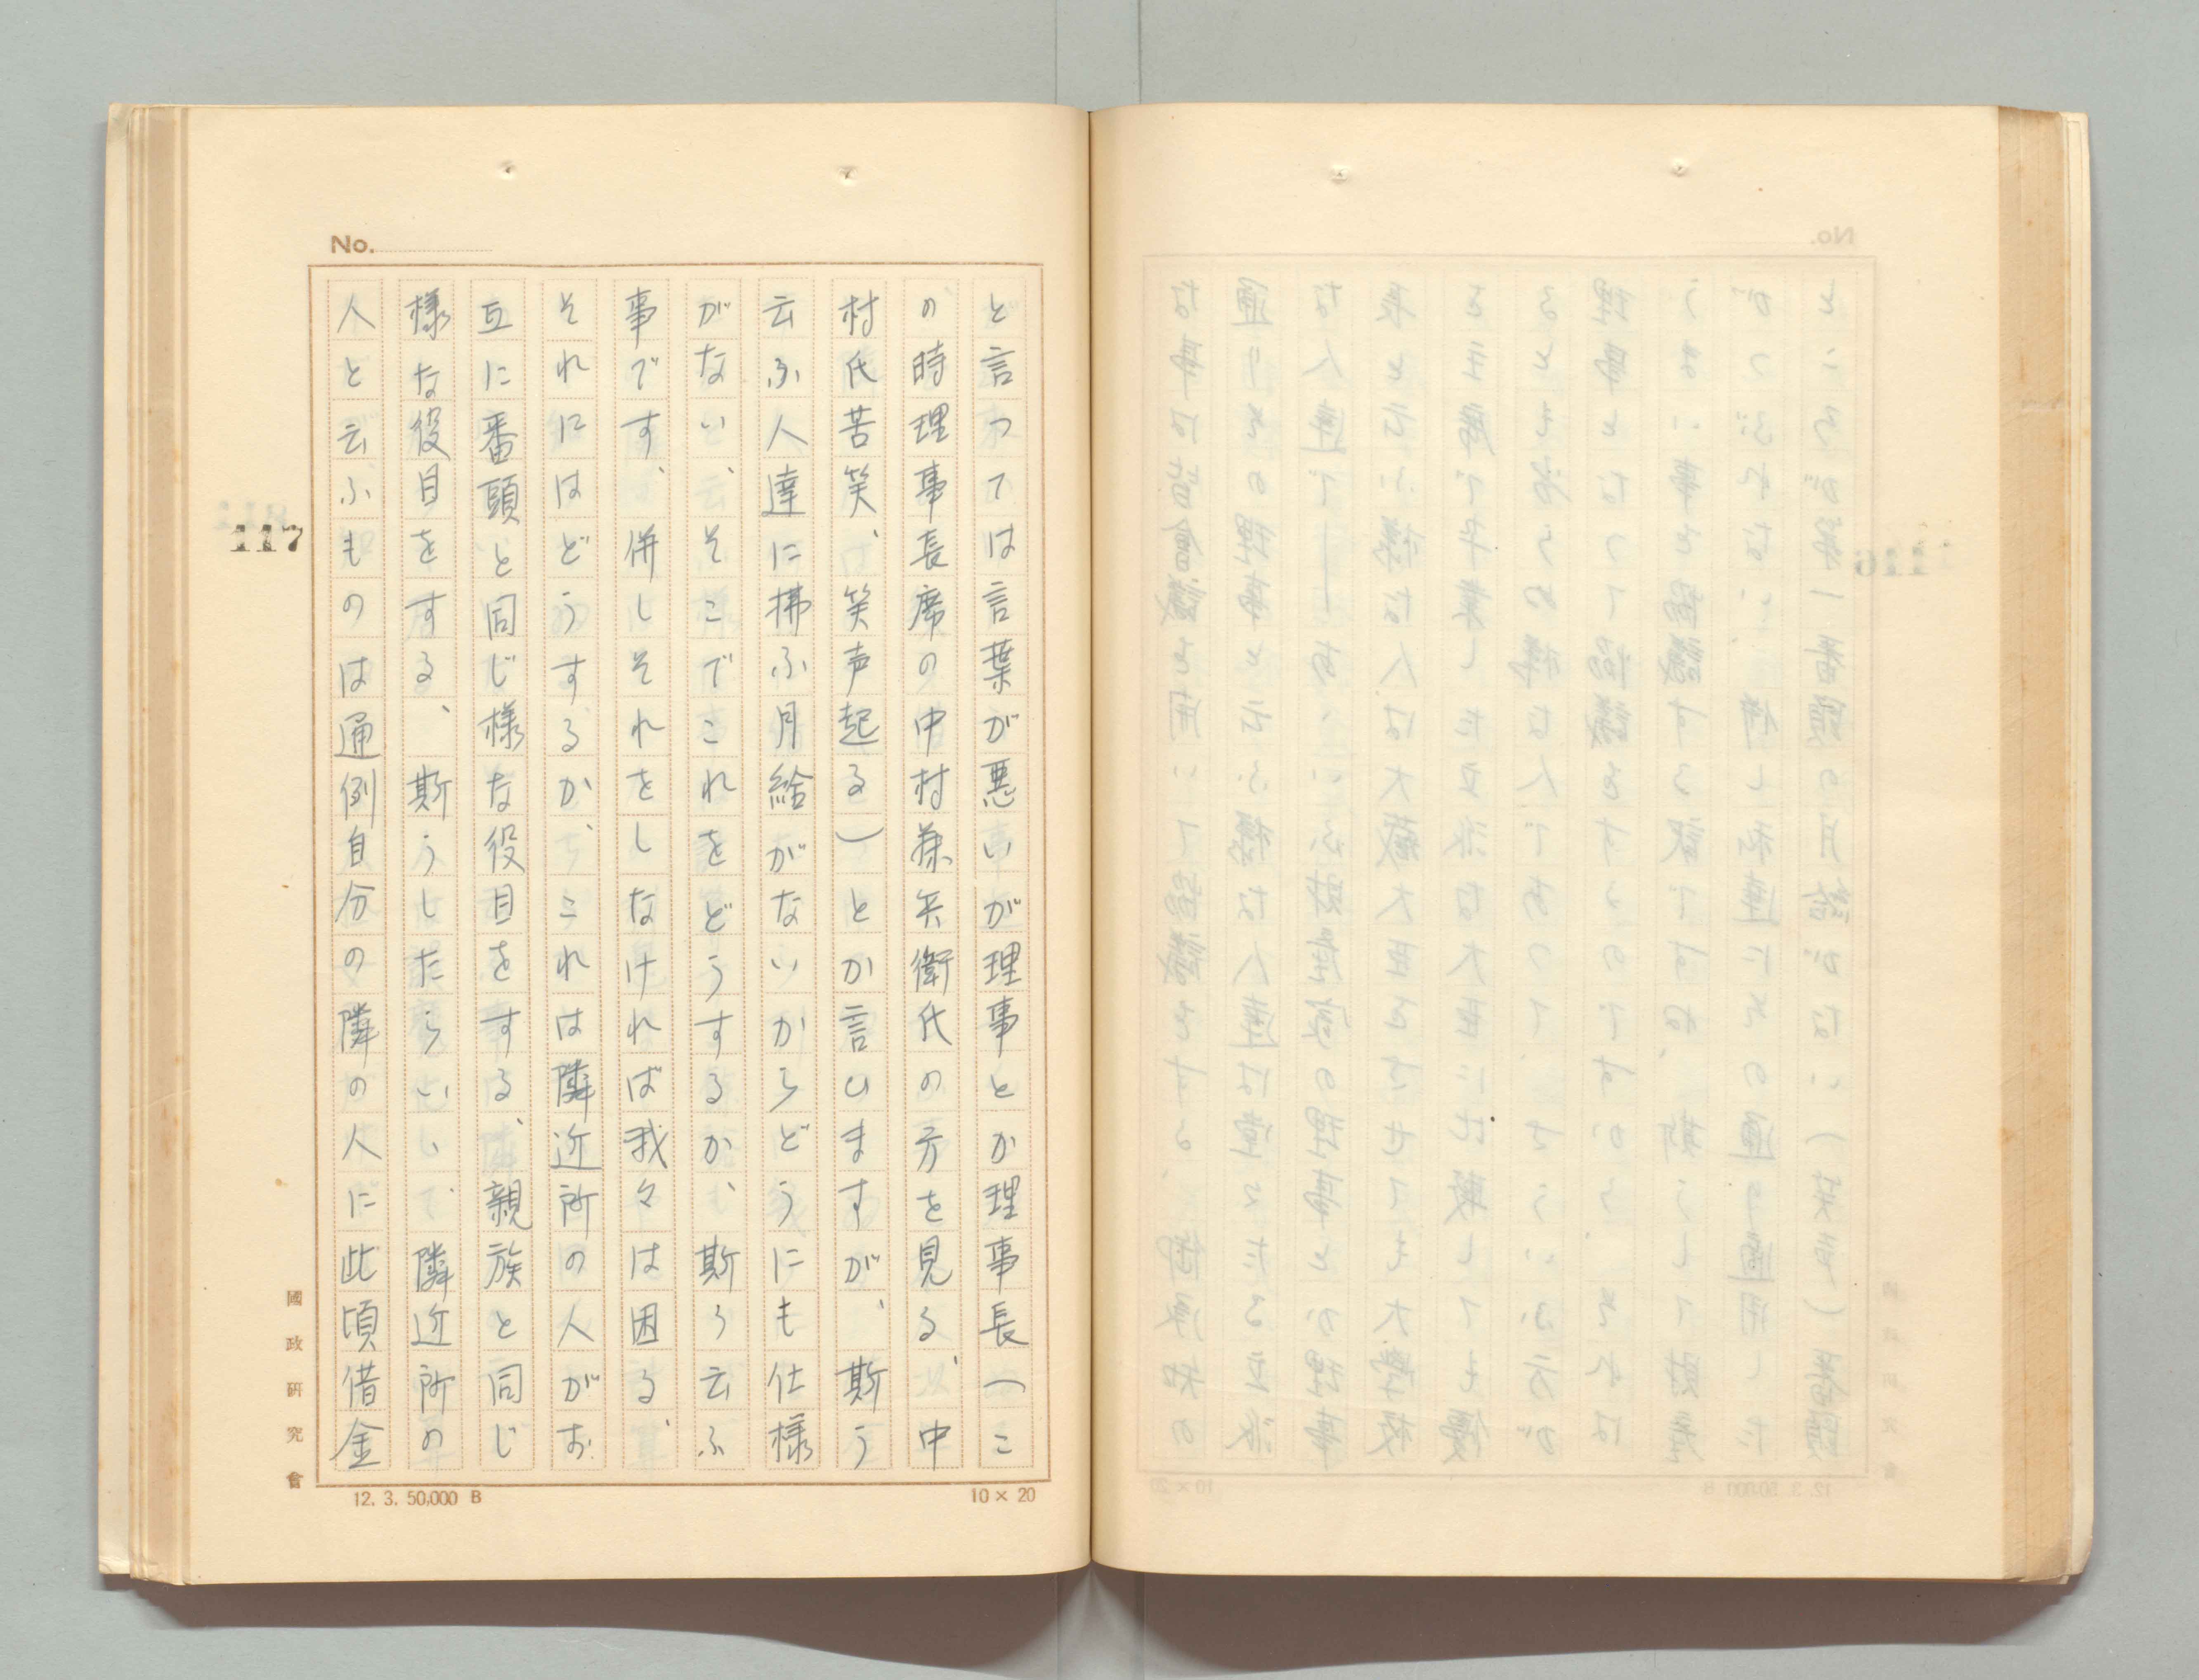 No.
と言つては言葉が悪いが理事とか理事長(こ
の時理事長席の中村藤兵衛氏の方を見る、中
村氏苦笑、笑声起る)とか言ひますが、斯う
云ふ人達に拂ふ月給がないからどうにも仕様
がない、そこでこれをどうするか、斯う云ふ
事です、併しそれをしなければ我々は困る、
それにはどうするか、これは隣近所の人がお
互に番頭と同じ様な役目をする、親族と同じ
様な役目をする、斯うしたらいゝ、隣近所の
人と云ふものは通例自分の隣の人に此頃借金
117
國政研究會
12. 3. 50,000 B
10×20